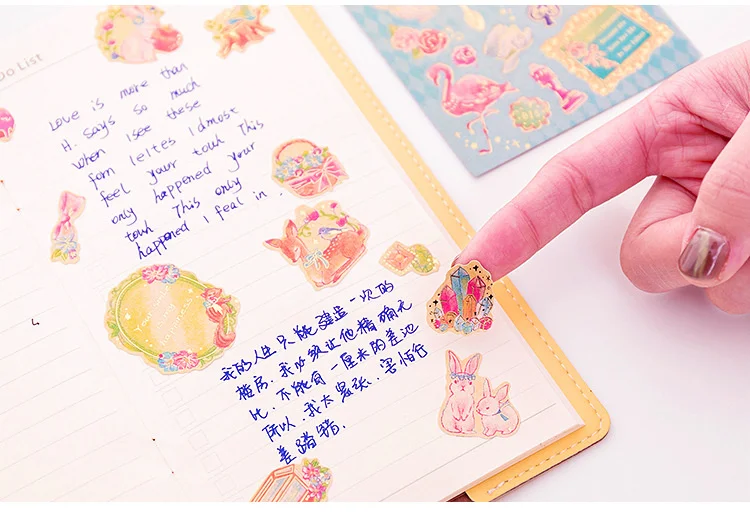 Do List
Love is more than
H. says so much
when Isee these
fom leltes Idmost
feel your touh This
only happened your
touh This only
happened I feal in.
我的人生只能建造一次的
楼房，我必须让他精确无
比，不能有一厘米的差池
所以，我太紧张，害怕行
差踏错.